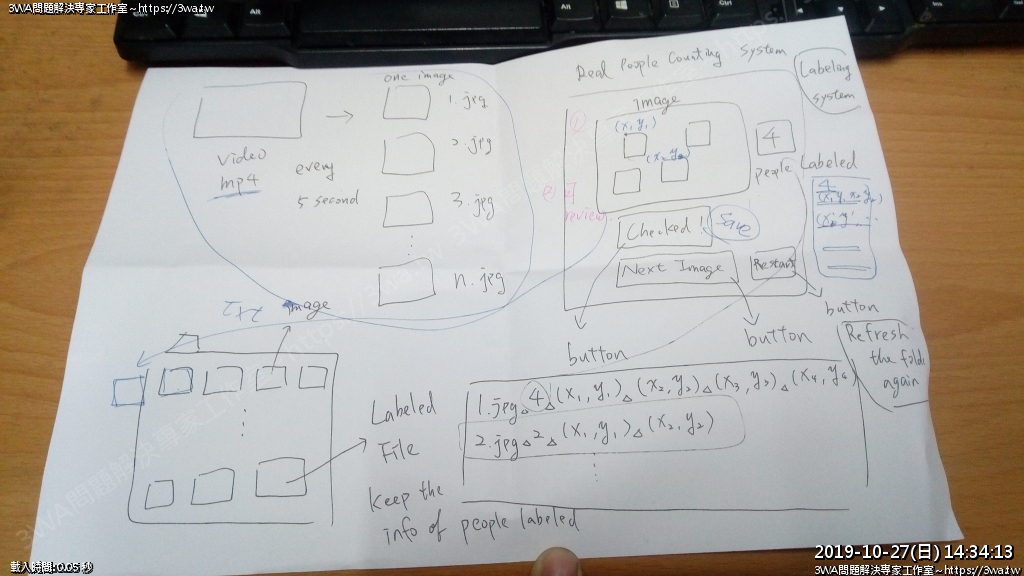 3WA問題解決專家工作室~https://3wa.tw
3WA問題解決專家工作室~https://3wa.tw
one image
1.jpg
2.jpg
3.jpg
n.jpg
video
mp4
every
5 second
Real People Counting System
Labeling
system
Image
(x, y,)
4
people
Labeled
4
Checked!
Save
Next Image
Restart
review
button
button
button
Refresh
the folder
again
txt
image
Labeled
File
Keep the
info of people labeled
1.jpg△4△(x₁,y₁)△(x₂,y₂)△(x₃,y₃)△(x₄,y₄)
2.jpg△2△(x₁,y₁)△(x₂,y₂)
載入時間:0.05 秒
2019-10-27(日) 14:34:13
3WA問題解決專家工作室~https://3wa.tw